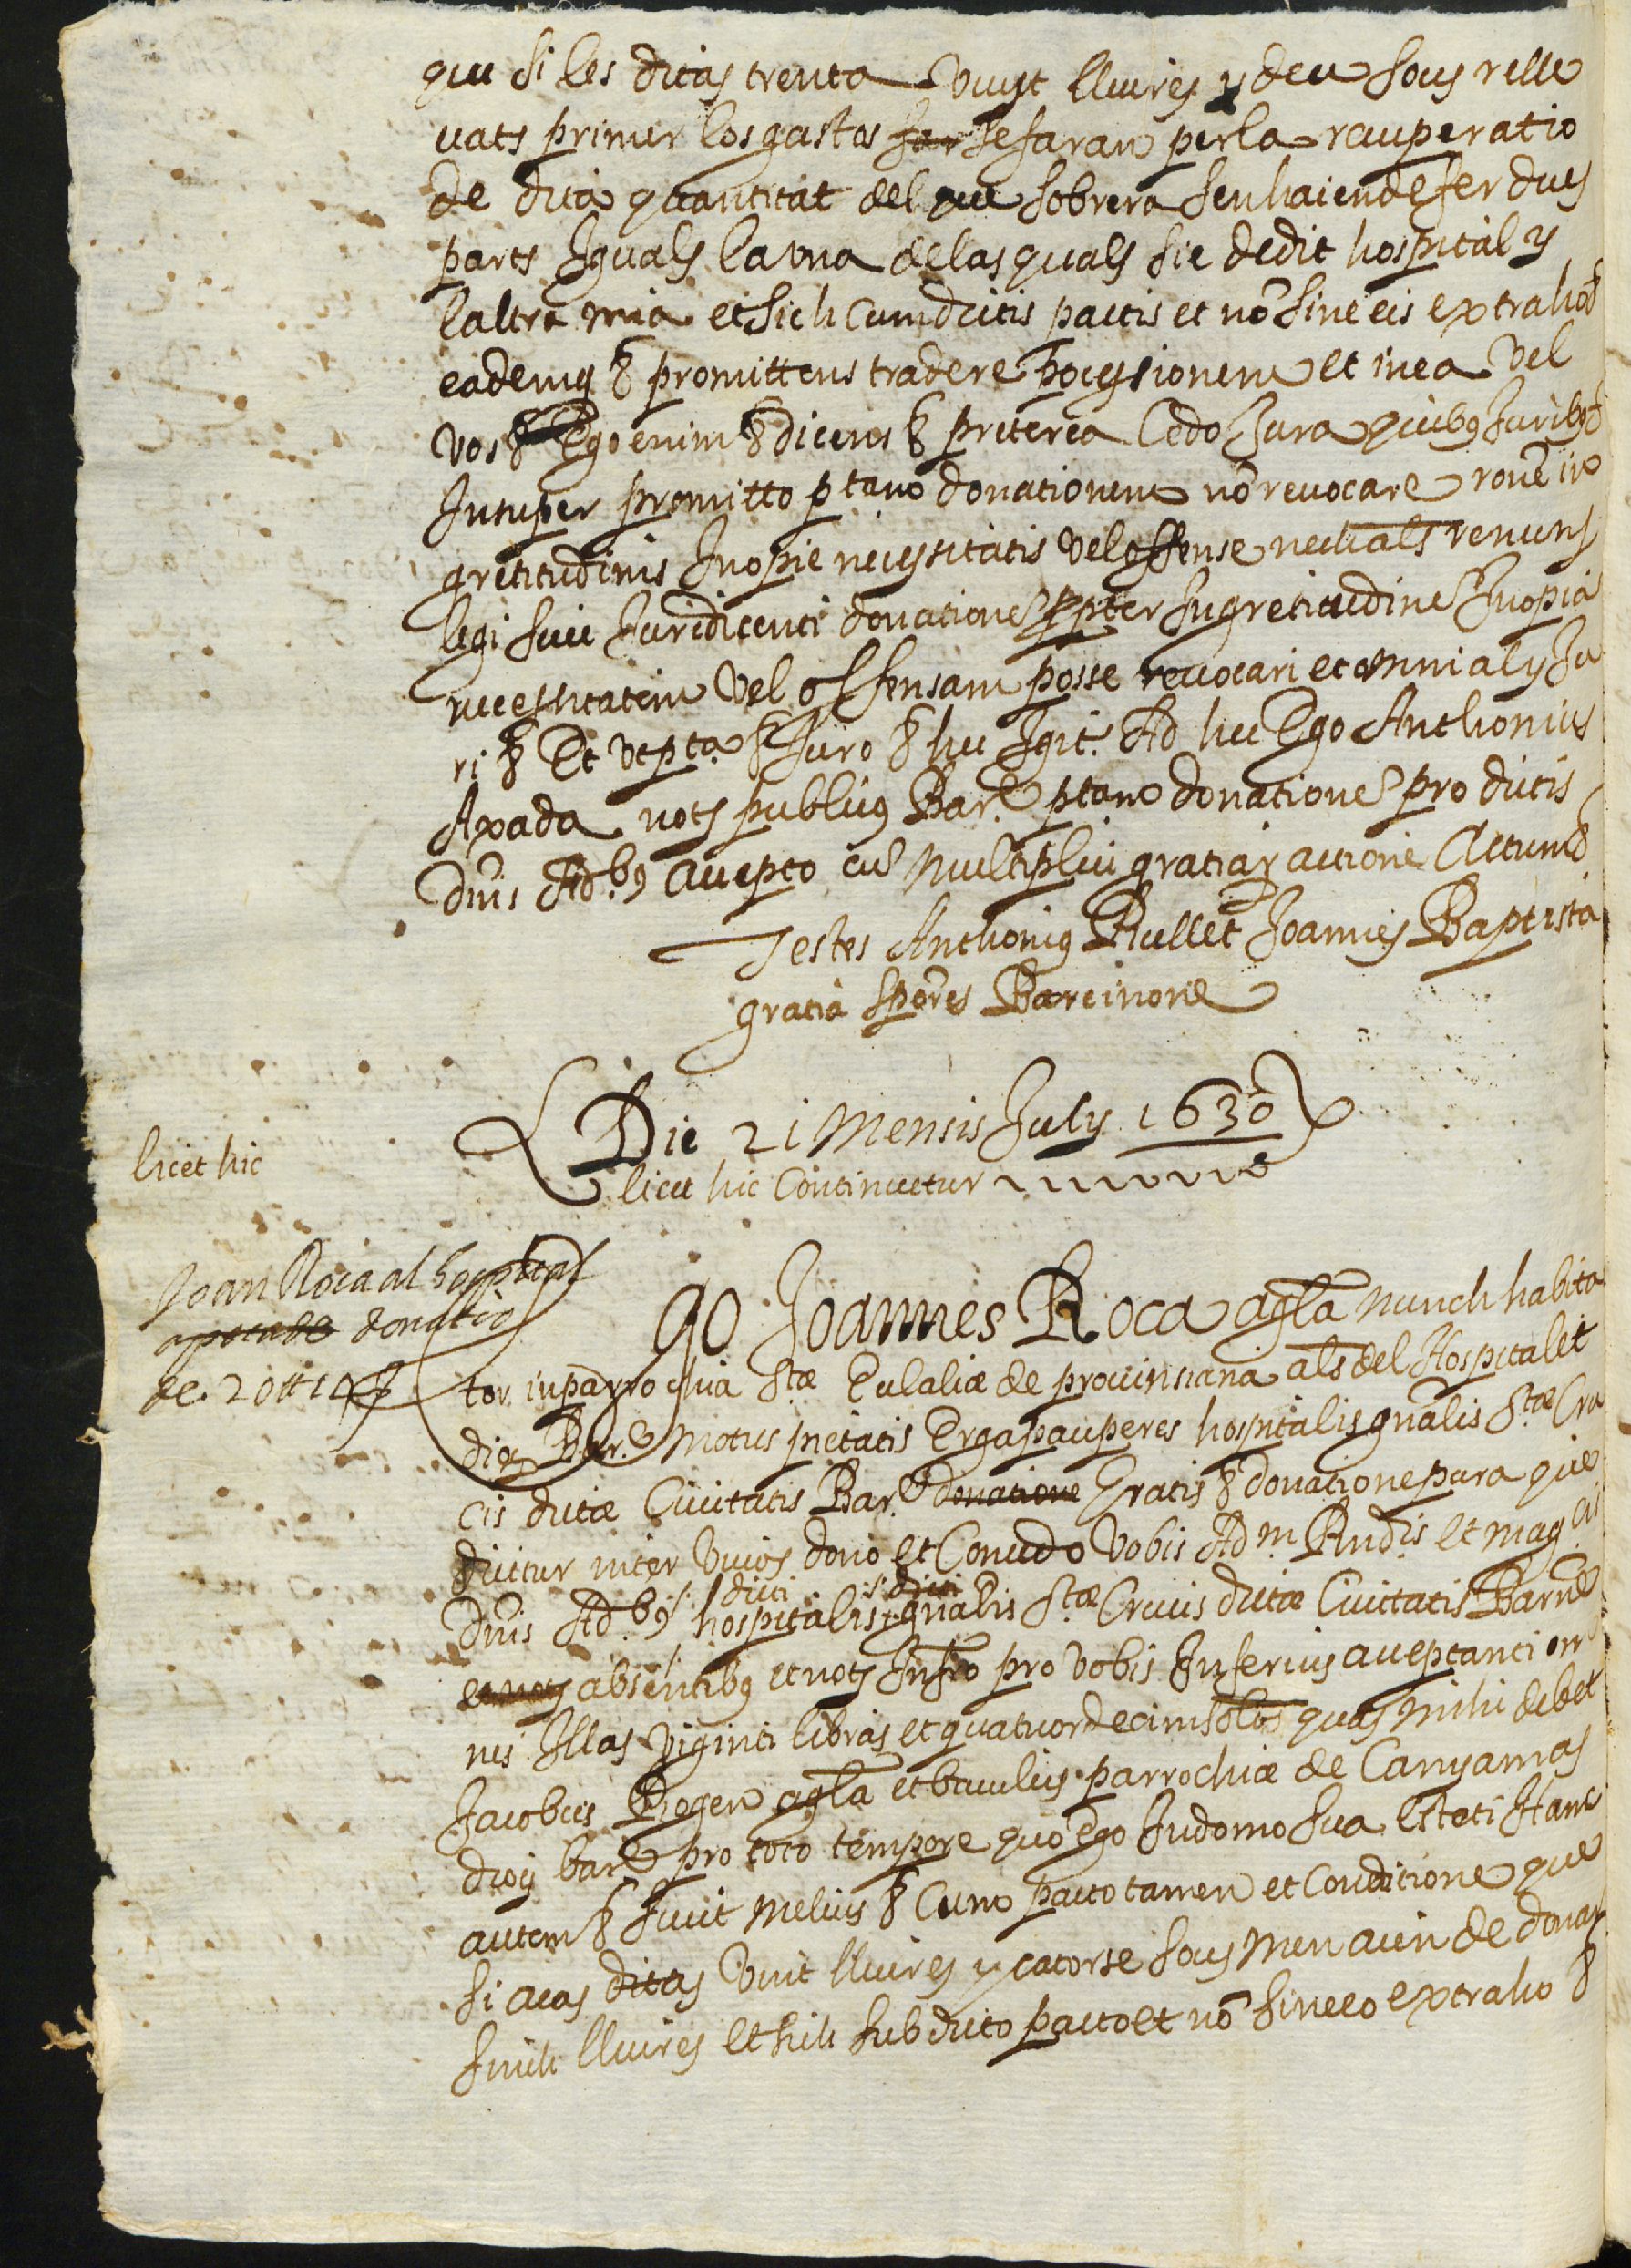 que si les ditas trenta vuyt lliures y deu sous relle
vats primer los gastos far se faran per la recuperatio
de dita quantitat del que sobrera sen haien de fer dus
parts Iguals la una de las quals sie de dit hospital y
laltra mia et sich cum dictis pactis et nō sine eis extraho &
eademq & promittens tradere possessionem et in ea vel
vos & Ego enim & dicens & preterea Cedo Jura quibq Juribq &
Insuper promitto ptam donationem nō revocare rone in
gratitudinis Inopie necessitatis vel offense nec alias renunṣ
legi sive Juri dicenti donatione ppter Ingratitudine Inopia
necessitatem vel offensam posse revocari et omni aly Ju
ri & Et ut pta & Juro & hec Igit. Ad hec Ego Anthonius
Axada nots publicq Bar.e ptam donatione pro dictis
Dnis Ad.bq accepto cu multiplici gratiaꝝ actione Actum &
Testes Anthonig Rullet Joannes Baptista
gratia sptores Barcinone
Die 21 Mensis July 1630
licet hic Continuetur
licet hic
Joan Roca al hospital
apoca de donatio
de 20 ₶ 14 ſ
go Joannes Roca agla nunch habita
tor in parrochia Stæ Eulaliæ de provinsiana als del Hospitalet
dioc. Bar.e Motus pietatis Erga pauperes hospitalis gnalis Stæ Cru
cis dictæ Civitatis Bar.e donatione Gratis & donatione pura que
dicitur inter vivos dono et Concedo Vobis Ad.m Rndis et mag.cis
Dnis Ad.bq hospitalis gnalis Stæ Crucis dictæ Civitatis Barne
dicti dicti
et nots absentibq et nots Infro pro vobis Inferius acceptanti om
nes Illas viginti libras et quatuordecim solos quas mihi debet
Jacobus Roger agla et baiulus parrochiæ de Canyamas
dioc. bar.e pro toto tempore quo ego In domo sua steti Hanc
autem & sicut melius & Cum pacto tamen et Conditione que
si acas ditas vint lliures y catorse sous men avin de donar
sinch lliures et sich sub dicto pacto et nō sine eo extraho &